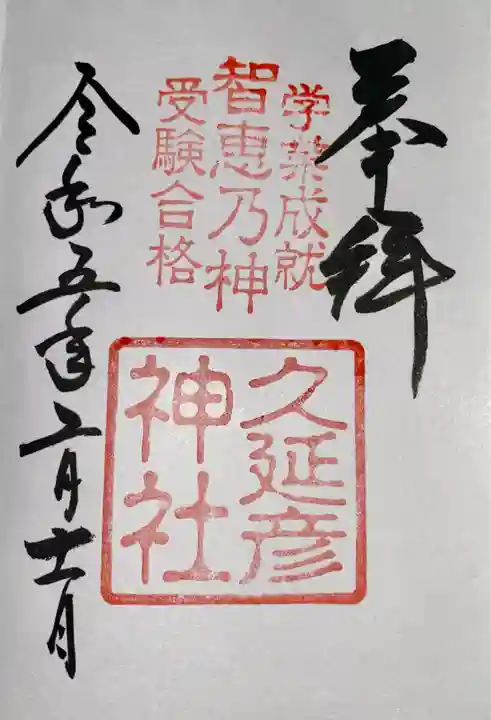 奉拝
学業成就
智恵乃神
受験合格
久延彦
神社
令和五年二月十二日